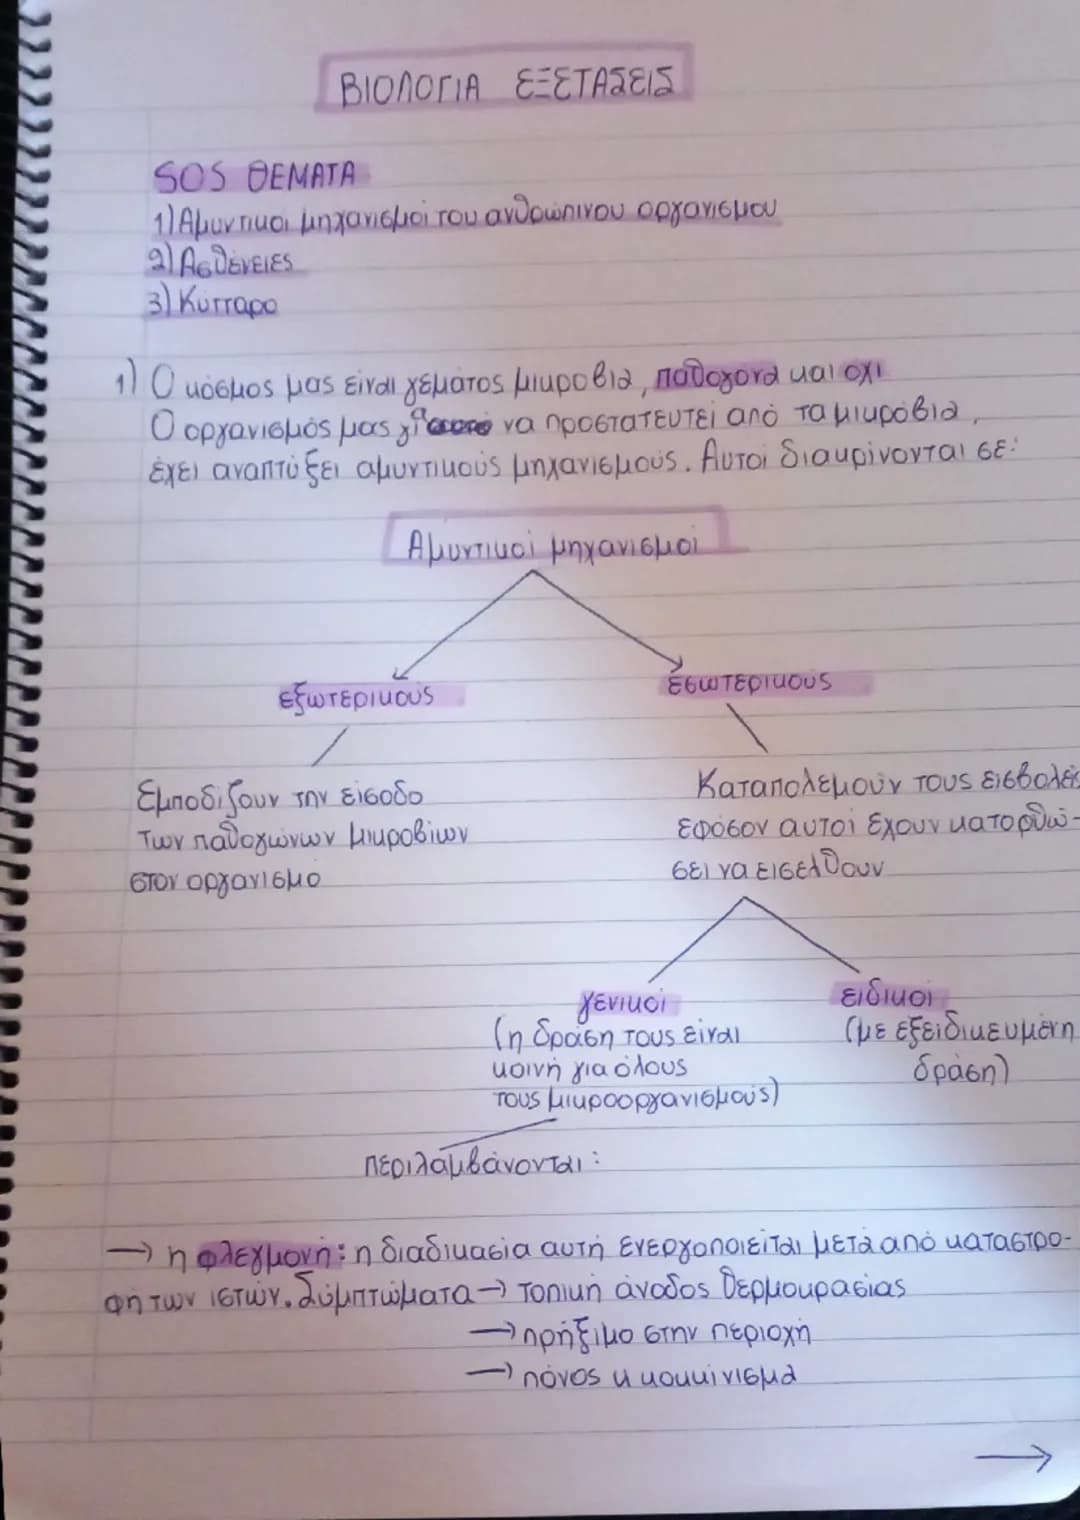 ΒΙΟΛΟΓΙΑ ΕΞΕΤΑΣΕΙΣ
SOS ΘΕΜΑΤΑ
1) Αμυντικοι μηχανισμοί του ανθρώπινου οργανισμου
2) Ασθένειες
3) Κύτταρο
1) Ο κόσμος μας είναι γεμάτος μικρόβια, παθογόνα και όχι
Ο οργανισμός μας να προστατευτεί από τα μικρόβια,
έχει αναπτύξει αμυντικούς μηχανισμούς. Αυτοί διακρίνονται σε:
Αμυντικοί μηχανισμοί
εξωτερικούς εσωτερικούς
Εμποδίζουν την είσοδο Καταπολεμούν τους εισβολείς
των παθογώνων μικροβίων εφόσον αυτοί έχουν κατορθώ-
στον οργανισμό σει να εισέλθουν
γενικοί ειδικοί
(η δράση τους είναι (με εξειδικευμένη
κοινή για όλους δράση)
τους μικροοργανισμούς)
περιλαμβάνονται:
→ η φλεγμονή: η διαδικασία αυτή ενεργοποιείται μετά από καταστρο-
φή των ιστών. Σύμπτώματα → τοπική άνοδος θερμοκρασίας
→ πρήξιμο στην περιοχή
→ πόνος κ κοκκίνισμα
→